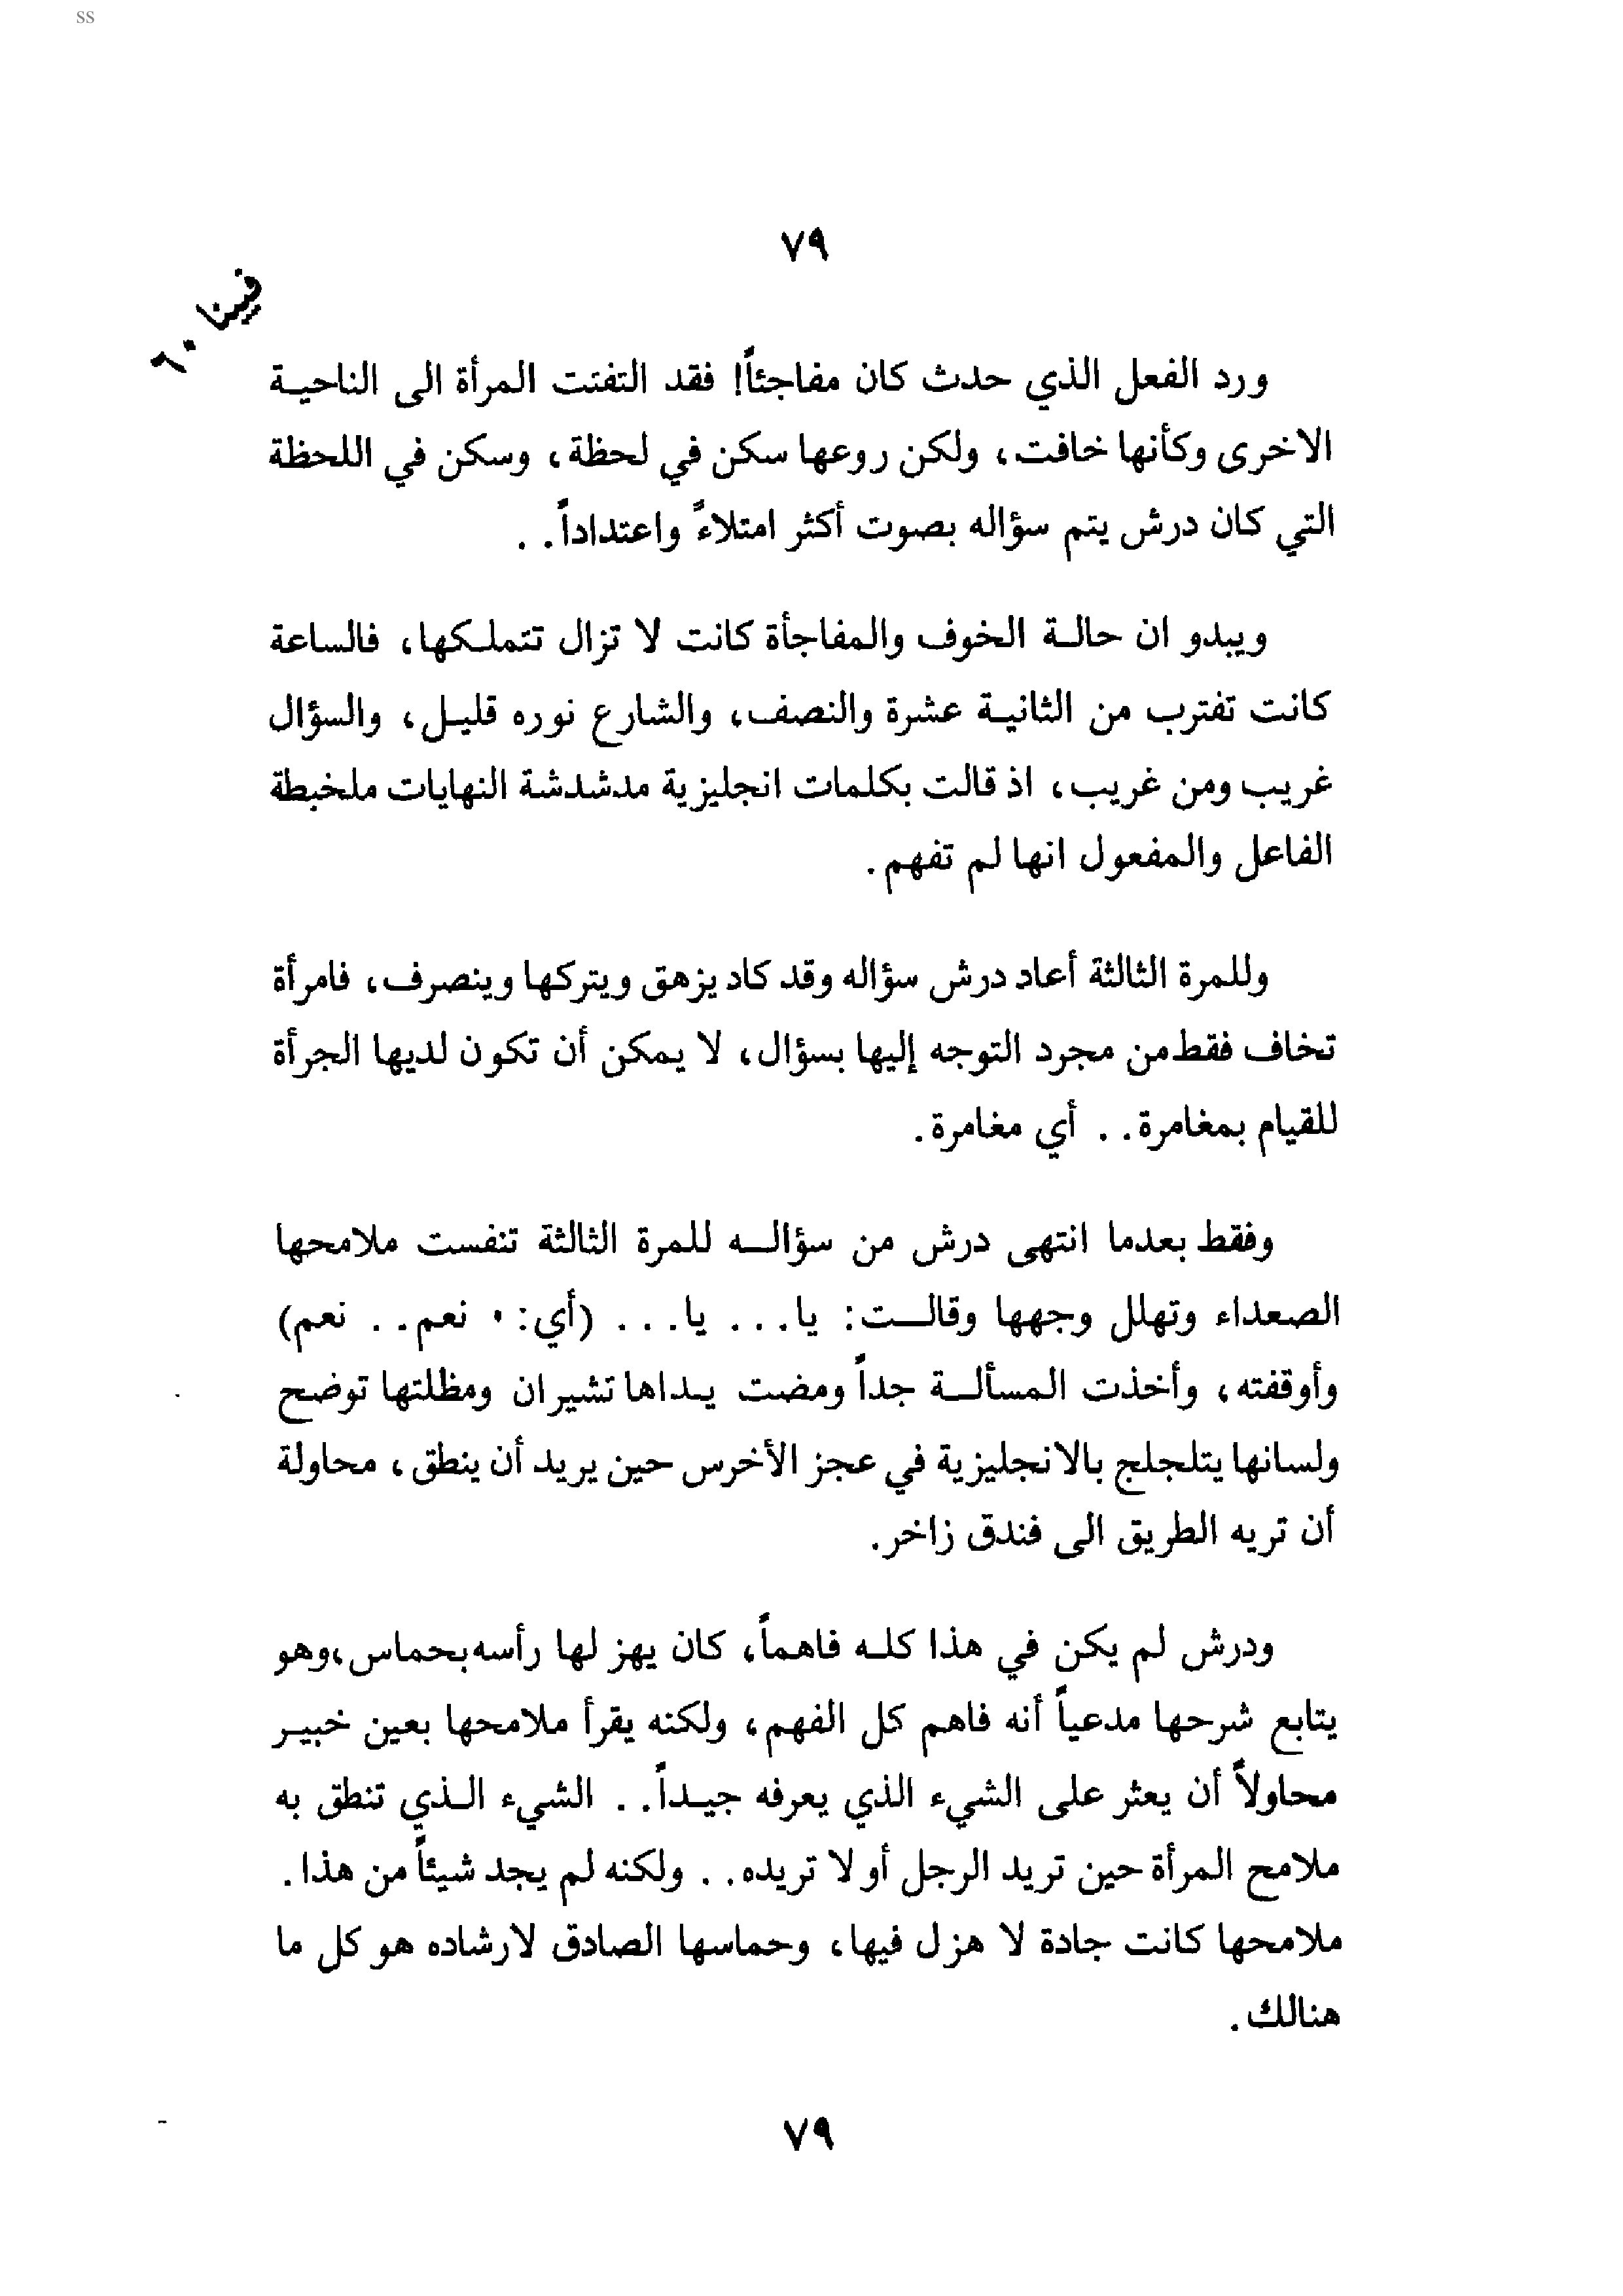 ss
٧٩
فيينا ٦٠
ورد الفعل الذي حدث كان مفاجئاً! فقد التفتت المرأة الى الناحية
الاخرى وكأنها خافت، ولكن روعها سكن في لحظة، وسكن في اللحظة
التي كان درش يتم سؤاله بصوت أكثر امتلاءً واعتداداً. .
ويبدو ان حالة الخوف والمفاجأة كانت لا تزال تتملكها، فالساعة
كانت تفترب من الثانية عشرة والنصف، والشارع نوره قليل، والسؤال
غريب ومن غريب، اذ قالت بكلمات انجليزية مدشدشة النهايات ملخبطة
الفاعل والمفعول انها لم تفهم.
وللمرة الثالثة أعاد درش سؤاله وقد كاد يزهق ويتركها وينصرف، فامرأة
تخاف فقط من مجرد التوجه إليها بسؤال، لا يمكن أن تكون لديها الجرأة
للقيام بمغامرة. . أي مغامرة.
وفقط بعدما انتهى درش من سؤاله للمرة الثالثة تنفست ملامحها
الصعداء وتهلل وجهها وقالت: يا... يا... (أي: نعم. . نعم)
وأوقفته، وأخذت المسألة جداً ومضت يداها تشيران ومظلتها توضح
ولسانها يتلجلج بالانجليزية في عجز الأخرس حين يريد أن ينطق، محاولة
أن تريه الطريق الى فندق زاخر.
ودرش لم يكن في هذا كله فاهماً، كان يهز لها رأسه بحماس، وهو
يتابع شرحها مدعياً أنه فاهم كل الفهم، ولكنه يقرأ ملامحها بعين خبير
محاولاً أن يعثر على الشيء الذي يعرفه جيداً. . الشيء الذي تنطق به
ملامح المرأة حين تريد الرجل أو لا تريده. . ولكنه لم يجد شيئاً من هذا.
ملامحها كانت جادة لا هزل فيها، وحماسها الصادق لارشاده هو كل ما
هنالك.
٧٩